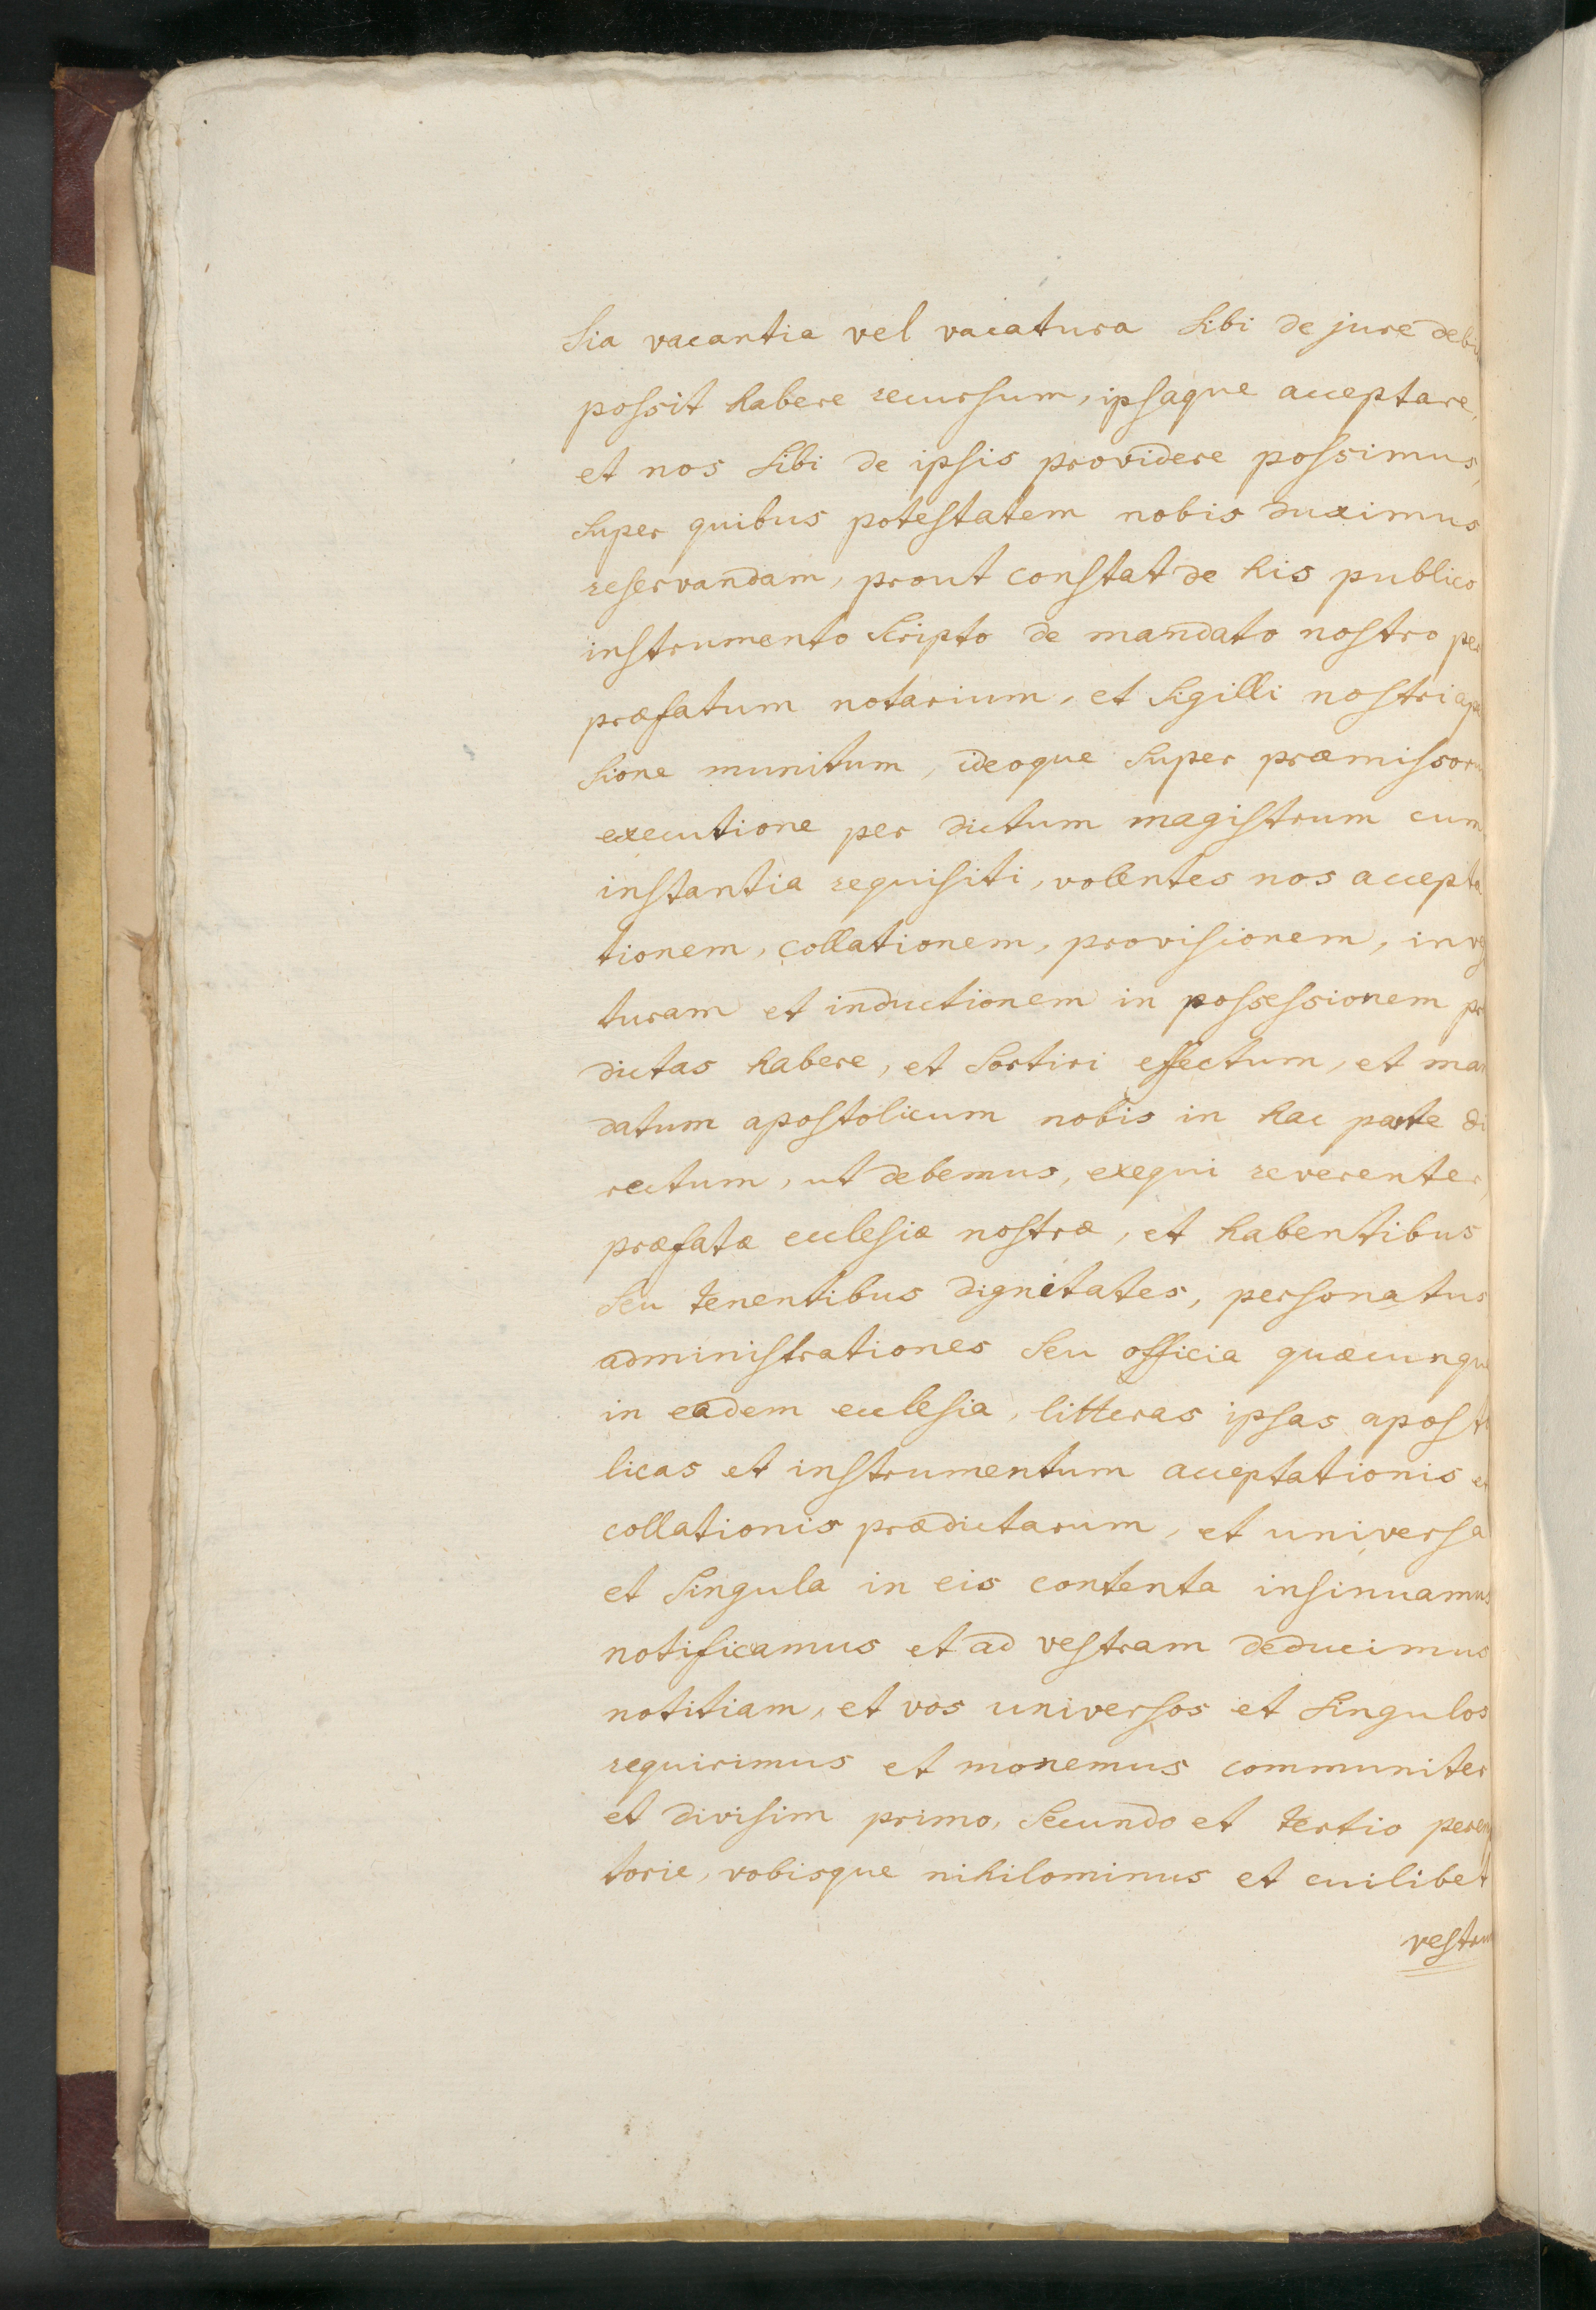 sia vacantia vel vacatura sibi de jure debi
possit habere recursum, ipsaque acceptare,
et nos sibi de ipsis providere possimus,
super quibus potestatem nobis duximus
reservandam, prout constat de his publico
instrumento scripto de mandato nostro per
præfatum notarium, et sigilli nostri ap
sione munitum, ideoque super præmissoru
executione per dictum magistrum cum
instantia requisiti, volentes nos accepta
tionem, collationem, provisionem, inves
turam et inductionem in possessionem pr
dictas habere, et sortiri effectum, et man
datum apostolicum nobis in hac parte di
rectum, ut debemus, exequi reverenter,
præfatæ ecclesiæ nostræ, et habentibus
seu tenentibus dignitates, personatus
administrationes seu officia quæcunque
in eadem ecclesia, litteras ipsas aposto
licas et instrumentum acceptationis et
collationis prædictarum, et universa
et singula in eis contenta insinuamus
notificamus et ad vestram deducimus
notitiam, et vos universos et singulos
requirimus et monemus communiter
et divisim primo, secundo et tertio perem
torie, vobisque nihilominus et cuilibet
vestrum